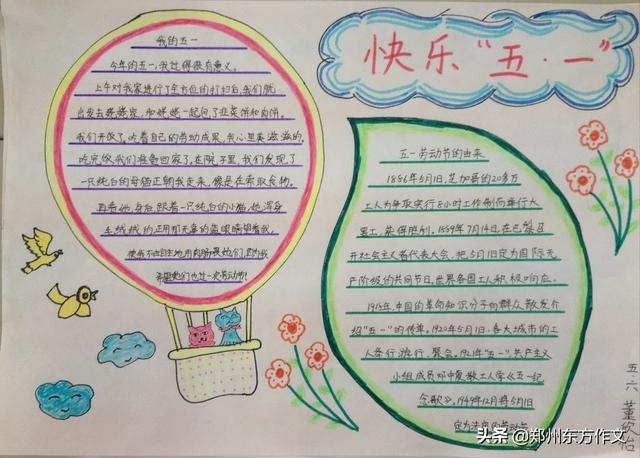 快乐“五·一”
我的五一
今年的五一,我过得很有意义。
上午对我家进行了全方位的打扫后,我们就
出发去姥姥家,和姥姥一起包了韭菜饼和肉饼。
我们开饭了。吃着自己的劳动成果,我心里美滋滋的。
吃完饭,我们准备回家了。在院子里,我们发现了
一只纯白的母猫正朝我走来,像是在索取食物。
再看她身后,跟着一只纯白的小猫,她浑身
毛绒绒的正用那天真的蓝眼睛望着我,
使我不由自主地用肉肠喂她们,因为我
希望她们也过一次劳动节!
五一劳动节的由来
1886年5月1日,芝加哥的20多万
工人为争取实行8小时工作制而举行大
罢工,获得胜利。1889年7月14日,在巴黎召
开社会主义者代表大会,把5月1日定为国际无
产阶级的共同节日,世界各国工人积极响应。
1918年,中国的革命知识分子向群众散发介
绍“五一”的传单。1920年5月1日,各大城市的工
人举行游行、聚会。1921年“五一”,共产主义
小组成员邓中夏教工人学《五一纪
念歌》,1949年12月将5月1日
定为法定的劳动节
五·六 董
头条 @郑州东方作文